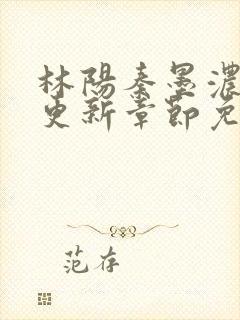 林陽秦墨濃
更新章節免
范存